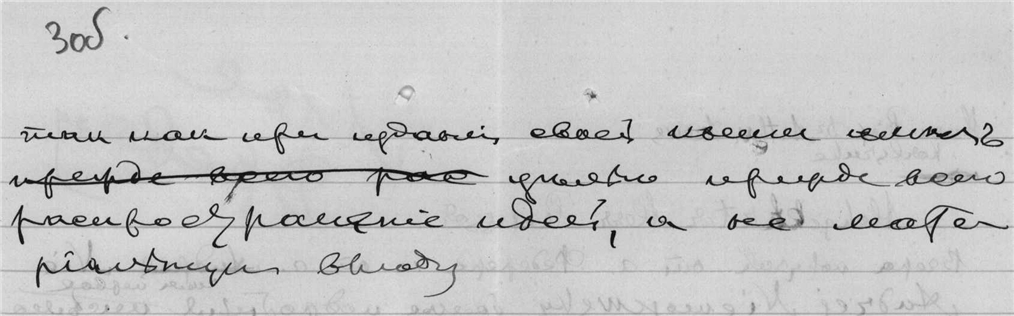 3 об.
так как при издании своей книги имелъ
прежде всего рас цѣлью прежде всего
распространеніе идей, а не мате
ріальную выгоду